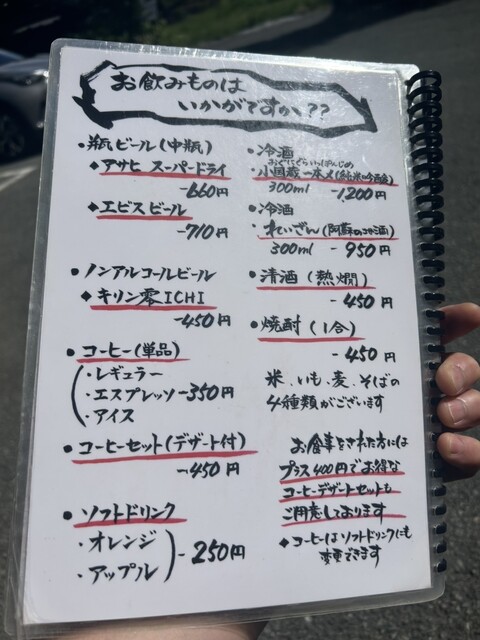 お飲みものは
いかがですか??
・瓶ビール(中瓶)
◆アサヒ スーパードライ
-660円
◆エビスビール
-710円
・ノンアルコールビール
◆キリン零ICHI
-450円
●コーヒー(単品)
・レギュラー
・エスプレッソ-350円
・アイス
●コーヒーセット(デザート付)
-450円
●ソフトドリンク
・オレンジ
・アップル
-250円
・冷酒
・小国蔵一本〆(純米吟醸)
300ml -1,200円
・冷酒
・れいざん(阿蘇の地酒)
300ml - 950円
・清酒(熱燗)
- 450円
・焼酎(1合)
- 450円
米、いも、麦、そばの
4種類がございます
お食事をされた方には
プラス400円でお得な
コーヒーデザートセットも
ご用意しております
◆コーヒーはソフトドリンクにも
変更できます